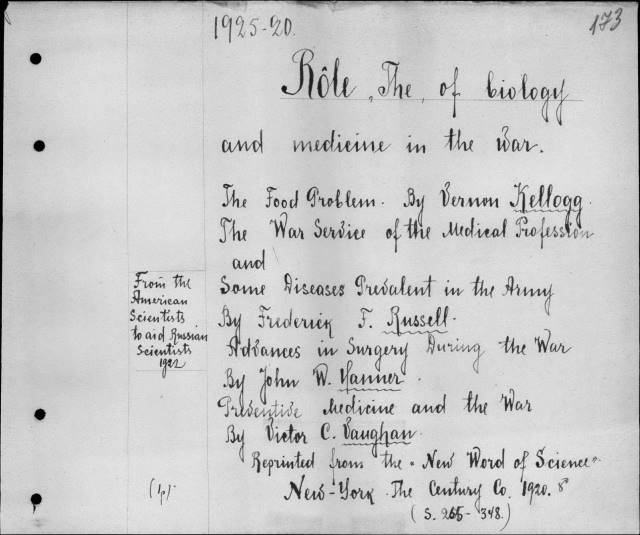 1925-20.
173
Rôle, The, of biology
and medicine in the war.
The Food Problem. By Vernon Kellogg.
The War Service of the Medical Profession
and
Some Diseases Prevalent in the Army
By Frederick F. Russell.
Advances in Surgery During the War
By John W. Hanner.
Preventive Medicine and the War
By Victor C. Vaughan.
Reprinted from the "New Word of Science".
New-York. The Century Co. 1920. 8°
(S. 265-348.)
From the
American
Scientists
to aid Russian
Scientists
1922
(4).